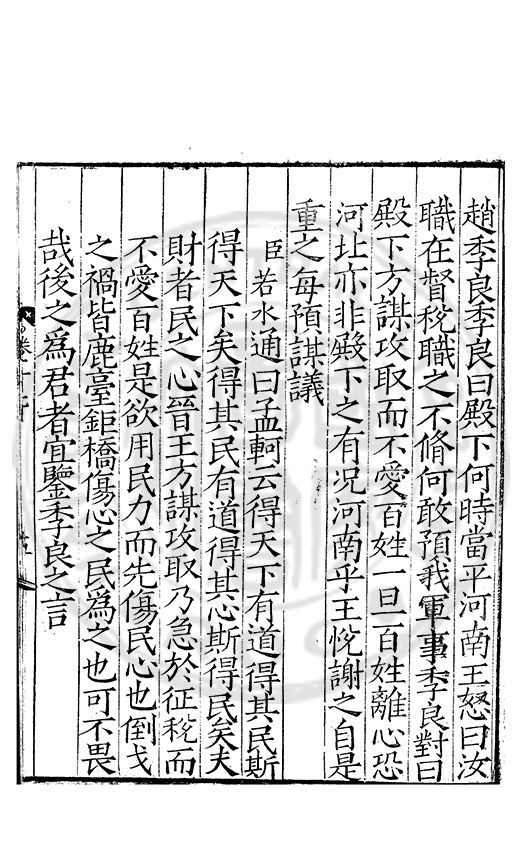 趙季良季良曰殿下何時當平河南王怒曰汝
職在督稅職之不脩何敢預我軍事季良對曰
殿下方謀攻取而不愛百姓一旦百姓離心恐
河北亦非殿下之有况河南乎王悅謝之自是
重之每預謀議
臣若水通曰孟軻云得天下有道得其民斯
得天下矣得其民有道得其心斯得民矣夫
財者民之心晉王方謀攻取乃急於征稅而
不愛百姓是欲用民力而先傷民心也倒戈
之禍皆鹿臺鉅橋傷心之民為之也可不畏
哉後之為君者宜鑒季良之言